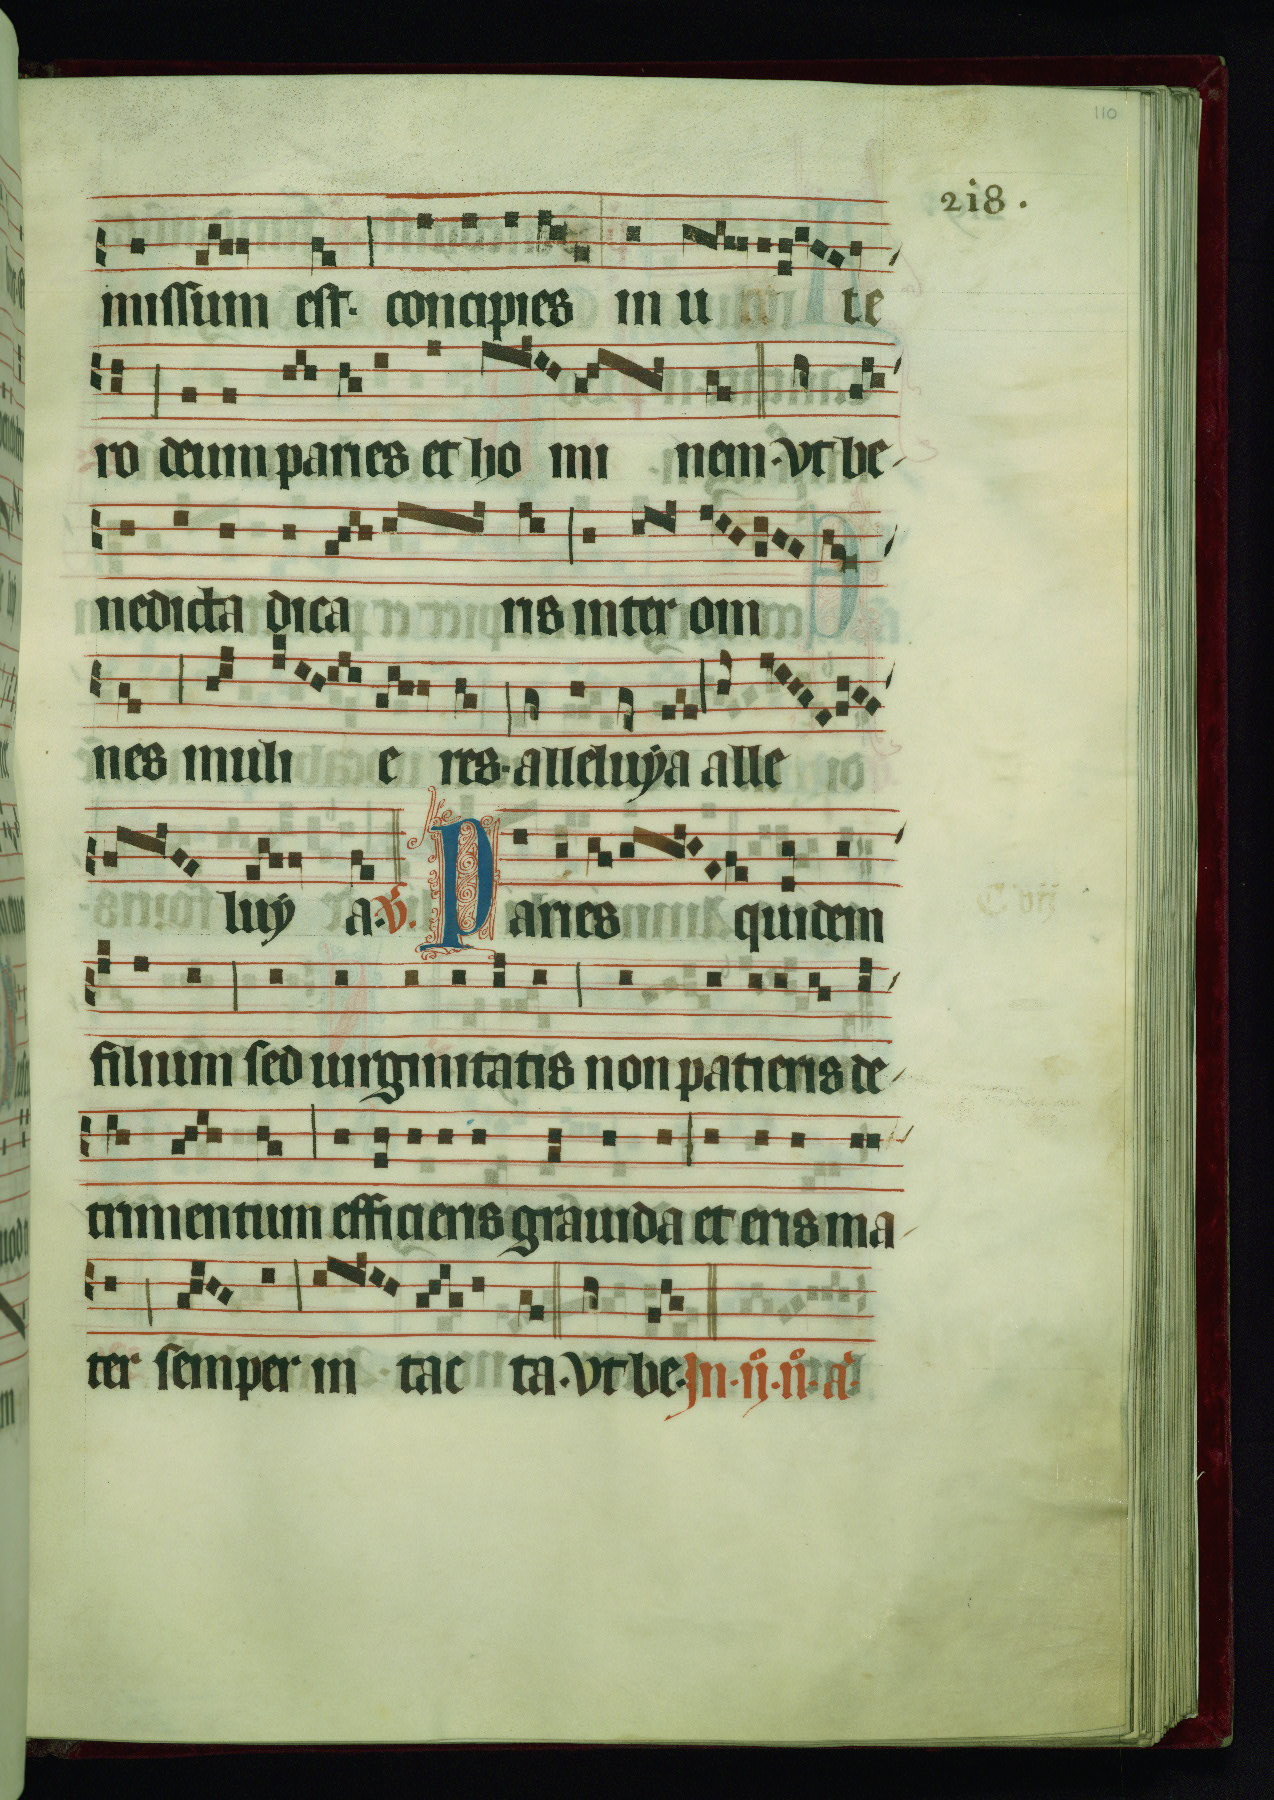 110
218.
missum est. concipies in u te
ro deum paries et ho mi nem. vt be
nedicta dica ris inter om
nes muli e res. alleluÿa alle
luÿ a. V. Paries quidem
filium sed uirginitatis non patieris de
trimentum efficieris grauida et eris ma
ter semper in tac ta. Vt be. In. ij. n. a